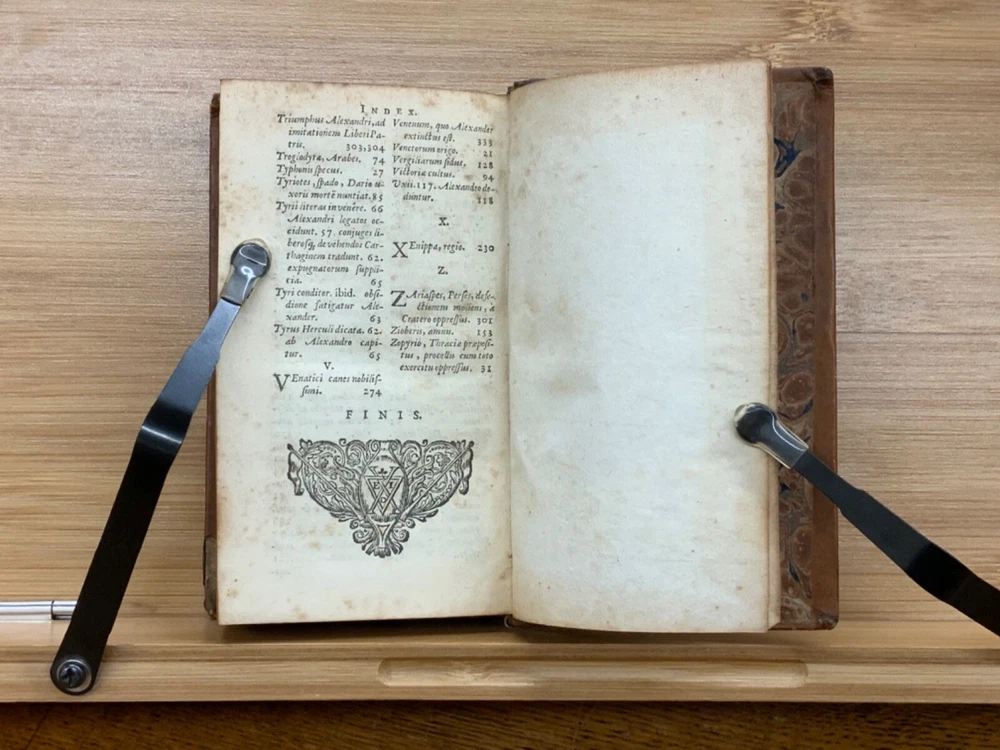 INDEX.
Triumphus Alexandri, ad
imitationem Liberi Pa-
tris. 303,304
Troglodytæ, Arabes. 74
Typhonis specus. 27
Tyriotes, spado, Dario u-
xoris mortē nuntiat. 85
Tyrii literas invenêre. 66
Alexandri legatos oc-
cidunt. 57. conjuges li-
berosq, devehendos Car-
thaginem tradunt. 62.
expugnatorum suppli-
cia. 65
Tyri conditor. ibid. obsi-
dione fatigatur Ale-
xander. 63
Tyrus Herculi dicata. 62.
ab Alexandro capi-
tur. 65
V.
VEnatici canes nobilis-
simi. 274
Venenum, quo Alexander
extinctus est. 333
Venetorum origo. 21
Vergiliarum sidus. 128
Victoriæ cultus. 94
Uxii. 117. Alexandro de-
duntur. 118
X.
XEnippa, regio. 230
Z.
ZAriaspes, Perses, defe-
ctionem moliens, à
Cratero oppressus. 301
Zioberis, amnis. 153
Zopyrio, Thraciæ præposi-
tus, procellis cum toto
exercitu oppressus. 31
FINIS.